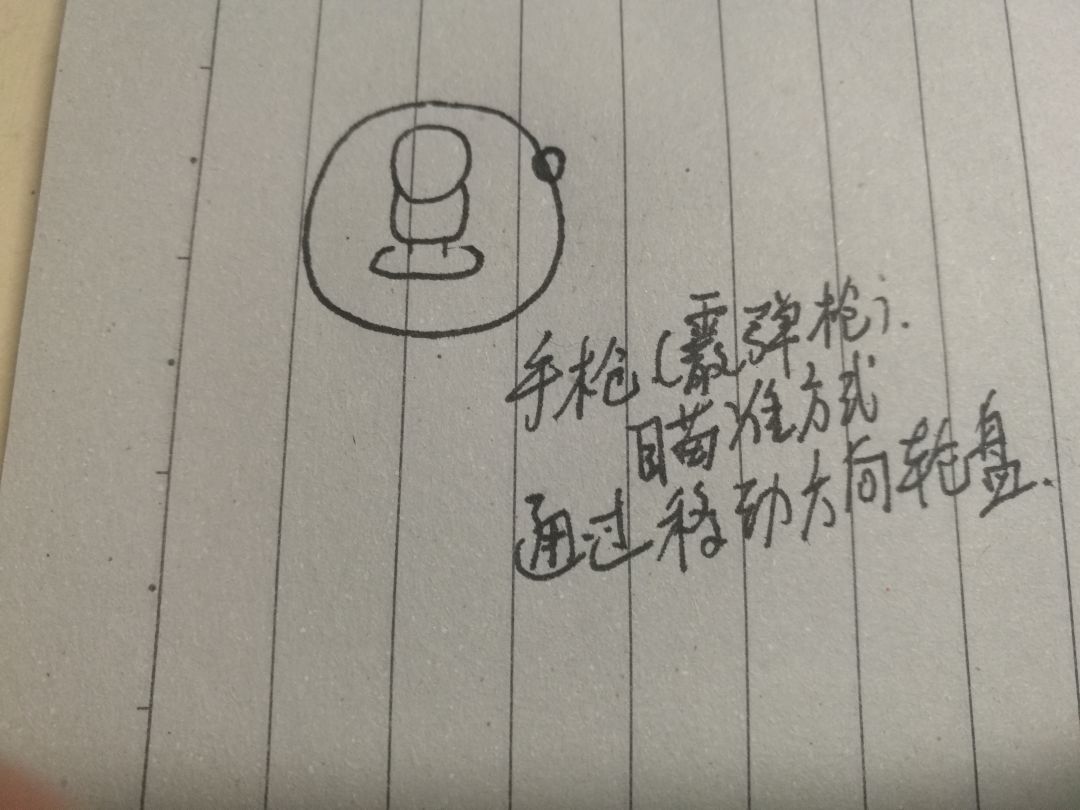 手枪(霰弹枪).
瞄准方式
通过移动方向轮盘.